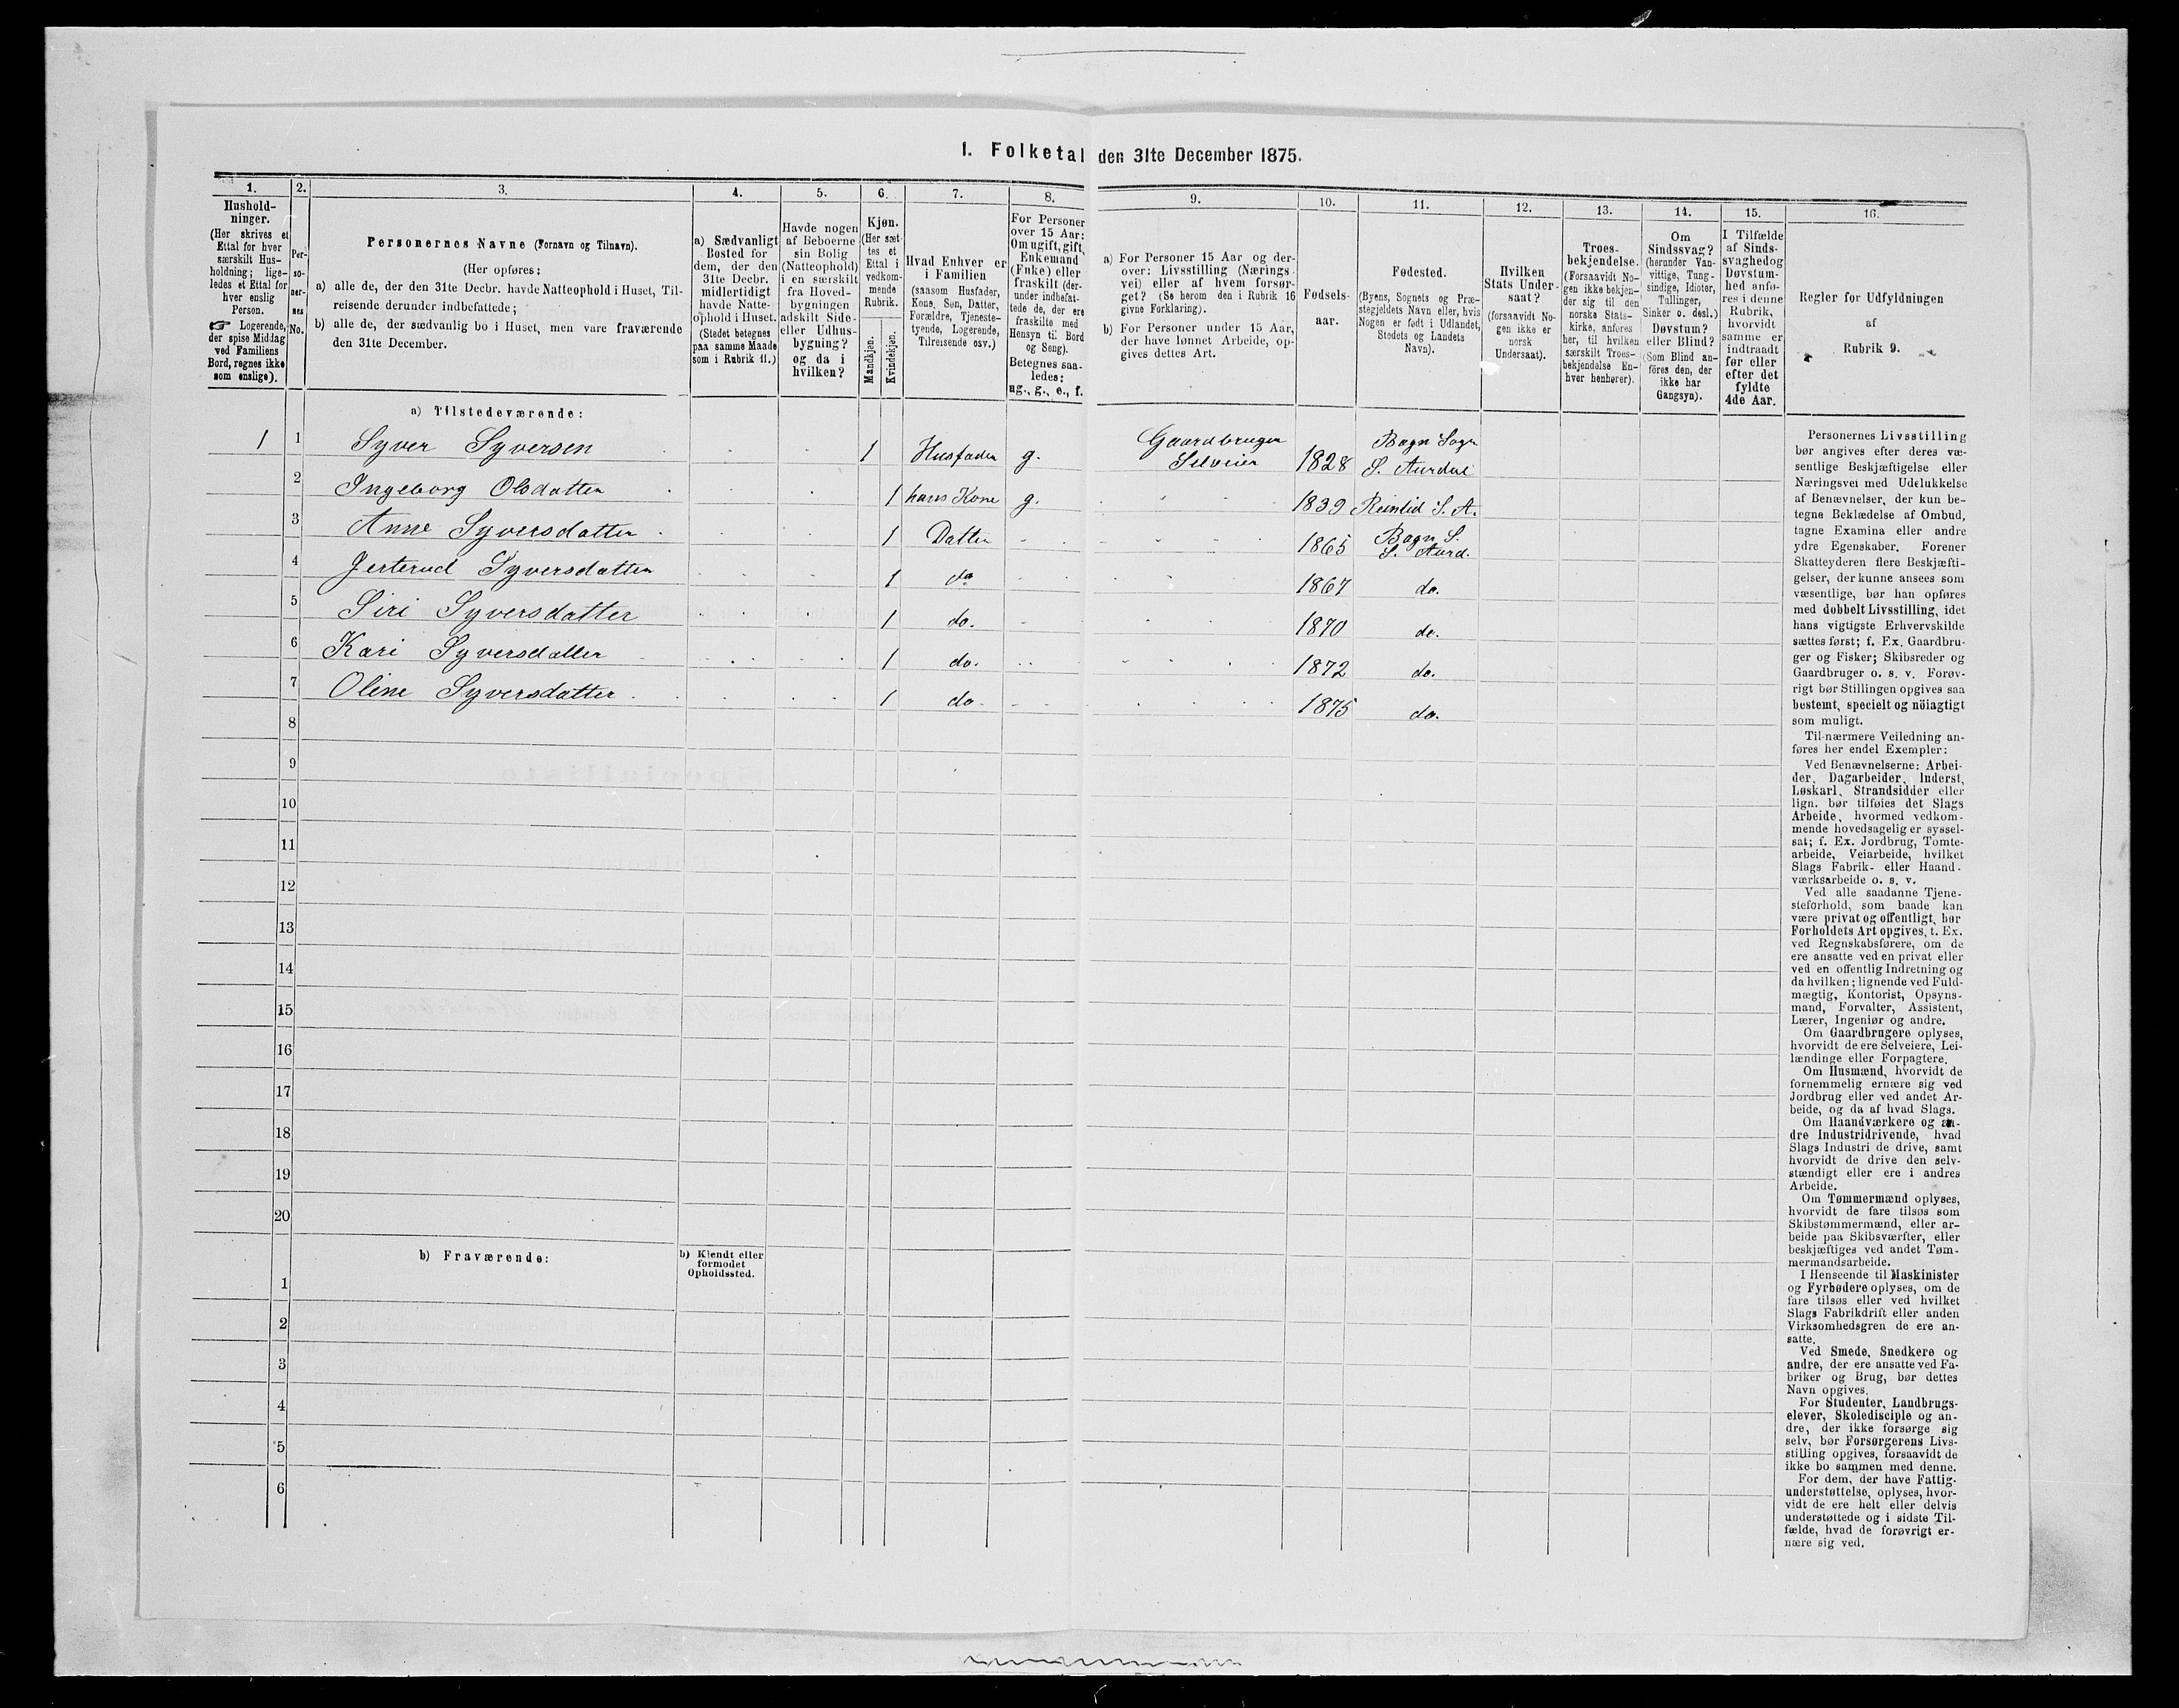 1. Folketal den 31te December 1875.
1. 2. 3. 4. 5. 6. 7. 8. 9. 10. 11. 12. 13. 14. 15. 16.
Hushold-
ninger.
(Her skrives et
Ettal for hver
særskilt Hus-
holdning; lige-
ledes et Ettal for
hver enslig
Person.
☞ Logerende,
der spise Middag
ved Familiens
Bord, regnes ikke
som enslige).
Per-
so-
ner-
nes
No.
Personernes Navne (Fornavn og Tilnavn).
(Her opføres:
a) alle de, der den 31te Decbr. havde Natteophold i Huset, Til-
reisende derunder indbefattede;
b) alle de, der sædvanlig bo i Huset, men vare fraværende
den 31te December.
a) Sædvanligt
Bosted for
dem, der den
31te Decbr.
midlertidigt
havde Natte-
ophold i Huset.
(Stedet betegnes
paa samme Maade
som i Rubrik 11.)
Havde nogen
af Beboerne
sin Bolig
(Natteophold)
i en særskilt
fra Hoved-
bygningen
adskilt Side-
eller Udhus-
bygning?
og da i
hvilken?
Kjøn.
(Her sæt-
tes et
Ettal i
vedkom-
mende
Rubrik.
Mandkjøn.
Kvindekjøn.
Hvad Enhver er
i Familien
(saasom Husfader,
Kone, Søn, Datter,
Forældre, Tjeneste-
tyende, Logerende,
Tilreisende osv.)
For Personer
over 15 Aar:
Om ugift, gift,
Enkemand
(Enke) eller
fraskilt (der-
under indbefat-
tede de, der ere
fraskilte med
Hensyn til Bord
og Seng).
Betegnes saa-
ledes:
ug., g., e., f.
a) For Personer 15 Aar og der-
over: Livsstilling (Nærings-
vei) eller af hvem forsør-
get? (Se herom den i Rubrik 16
givne Forklaring).
b) For Personer under 15 Aar,
der have lønnet Arbeide, op-
gives dettes Art.
Fødsels-
aar.
Fødested.
(Byens, Sognets og Præ-
stegjeldets Navn eller, hvis
Nogen er født i Udlandet,
Stedets og Landets
Navn).
Hvilken
Stats Under-
saat?
(forsaavidt No-
gen ikke er
norsk
Undersaat).
Troes-
bekjendelse.
(Forsaavidt No-
gen ikke bekjen-
der sig til den
norske Stats-
kirke, anføres
her, til hvilken
særskilt Troes-
bekjendelse En-
hver henhører).
Om
Sindssvag?
(herunder Van-
vittige, Tung-
sindige, Idioter,
Tullinger,
Sinker o. desl.)
Døvstum?
eller Blind?
(Som Blind an-
föres den, der
ikke har
Gangsyn).
I Tilfælde
af Sinds-
svaghed og
Døvstum-
hed anfø-
res i denne
Rubrik,
hvorvidt
samme er
indtraadt
før eller
efter det
fyldte
4de Aar.
Regler for Udfyldningen
af
Rubrik 9.
a) Tilstedeværende:
1 1 Syver Syversen 1 Husfader g. Gaardbruger
Selveier 1828 Bagn Sogn
S. Aurdal
2 Ingeborg Olsdatter 1 hans Kone g. 1839 Reinlid S. A.
3 Anne Syversdatter 1 Datter 1865 Bagn S.
S. Aurd.
4 Jerterud Syversdatter 1 do 1867 do.
5 Siri Syversdatter 1 do. 1870 do.
6 Kari Syversdatter 1 do. 1872 do.
7 Oline Syversdatter 1 do. 1875 do.
8
9
10
11
12
13
14
15
16
17
18
19
20
b) Fraværende:
b) Kjendt eller
formodet
Opholdssted.
1
2
3
4
5
6
Personernes Livsstilling
bør angives efter deres væ-
sentlige Beskjæftigelse eller
Næringsvei med Udelukkelse
af Benævnelser, der kun be-
tegne Beklædelse af Ombud,
tagne Examina eller andre
ydre Egenskaber. Forener
Skatteyderen flere Beskjæfti-
gelser, der kunne ansees som
væsentlige, bør han opføres
med dobbelt Livsstilling, idet
hans vigtigste Erhvervskilde
sættes først; f. Ex. Gaardbru-
ger og Fisker; Skibsreder og
Gaardbruger o. s. v. Forøv-
rigt bør Stillingen opgives saa
bestemt, specielt og nöiagtigt
som muligt.
Til nærmere Veiledning an-
føres her endel Exempler:
Ved Benævnelserne: Arbei-
der, Dagarbeider, Inderst,
Løskarl, Strandsidder eller
lign. bør tilføies det Slags
Arbeide, hvormed vedkom-
mende hovedsagelig er syssel-
sat; f. Ex. Jordbrug, Tomte-
arbeide, Veiarbeide, hvilket
Slags Fabrik- eller Haand-
værksarbeide o. s. v.
Ved alle saadanne Tjene-
steforhold, som baade kan
være privat og offentligt, bør
Forholdets Art opgives, f. Ex.
ved Regnskabsførere, om de
ere ansatte ved en privat eller
ved en offentlig Indretning og
da hvilken; lignende ved Fuld-
mægtig, Kontorist, Opsyns-
mand, Forvalter, Assistent,
Lærer, Ingeniør og andre.
Om Gaardbrugere oplyses,
hvorvidt de ere Selveiere, Lei-
lændinge eller Forpagtere.
Om Husmænd, hvorvidt de
fornemmelig ernære sig ved
Jordbrug eller ved andet Ar-
beide, og da af hvad Slags.
Om Haandværkere og an-
dre Industridrivende, hvad
Slags Industri de drive, samt
hvorvidt de drive den selv-
stændigt eller ere i andres
Arbeide.
Om Tømmermænd oplyses,
hvorvidt de fare tilsøs som
Skibstømmermænd, eller ar-
beide paa Skibsværfter, eller
beskjæftiges ved andet Tøm-
mermandsarbeide.
I Henseende til Maskinister
og Fyrbødere oplyses, om de
fare tilsøs eller ved hvilket
Slags Fabrikdrift eller anden
Virksomhedsgren de ere an-
satte.
Ved Smede, Snedkere og
andre, der ere ansatte ved Fa-
briker og Brug, bør dettes
Navn opgives.
For Studenter, Landbrugs-
elever, Skoledisciple og an-
dre, der ikke forsørge sig
selv, bør Forsørgerens Livs-
stilling opgives, forsaavidt de
ikke bo sammen med denne.
For dem, der have Fattig-
understøttelse, oplyses, hvor-
vidt de ere helt eller delvis
understøttede og i sidste Til-
fælde, hvad de forøvrigt er-
nære sig ved.